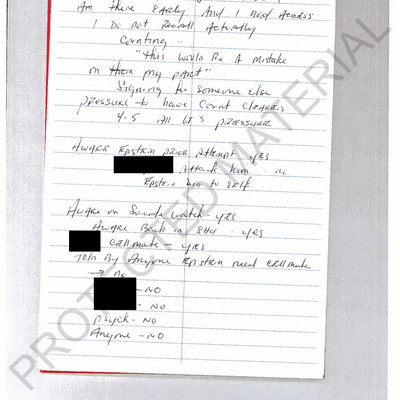 Am there early And I need Access
I Do not Recall Actually
Counting
"this would Be A mistake
on there my part"
Signing for someone else
pressure to have count cleared
4-5 All Lt's pressure
Aware Epstein prior Attempt - yes
Attack him - no
Epstein him to self
Aware on Suicide watch - yes
Aware Back in SHU - yes
cellmate - yes
Told By Anyone Epstein need cellmate
→ no
- NO
- NO
Psych - NO
Anyone - NO
PROTECTED MATERIAL